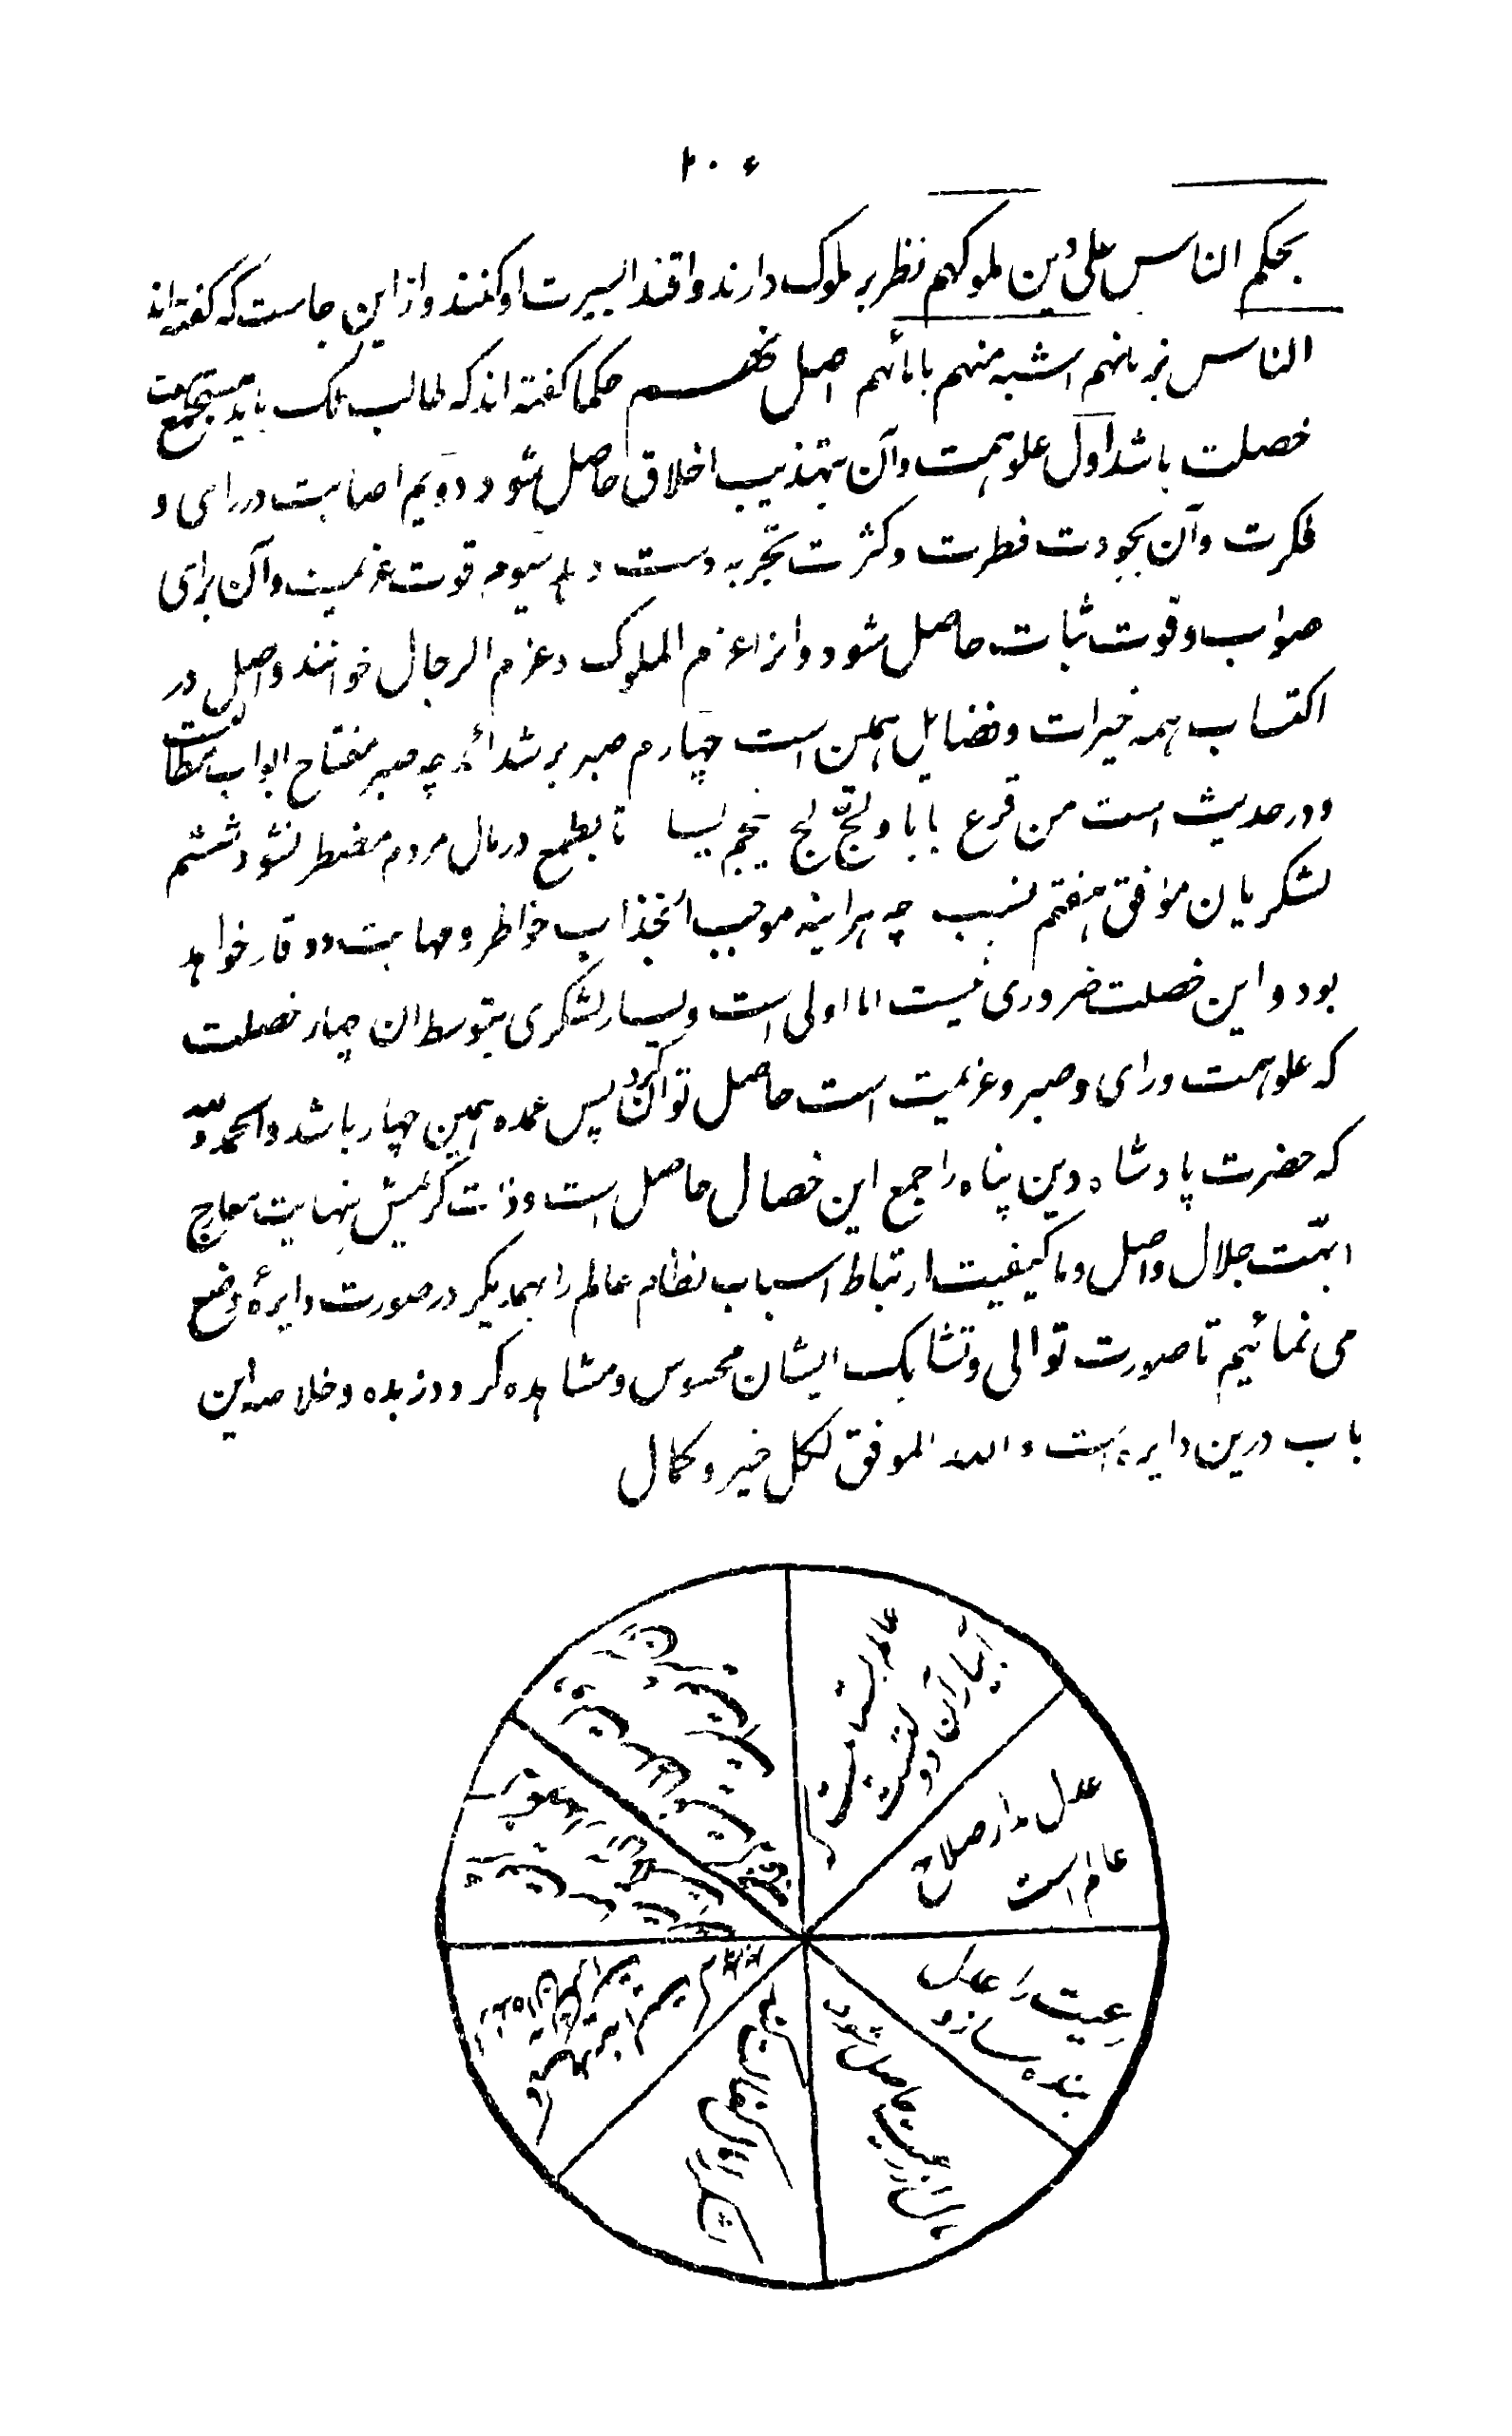 ۲۰۶
بحکم الناس علی دین ملوکهم نظر بر ملوک دارند و اقتدا بسیرت او کنند و از این جاست که گفته اند
الناس بزمانهم اشبه منهم بابائهم اصل نهم حکما گفته اند که طالب ملک باید مستجمع هفت
خصلت باشد اول علو همت و آن بتهذیب اخلاق حاصل شود دویم اصابت در رای و
فکرت و آن بجودت فطرت و کثرت تجربه دست دهد سیوم قوت عزیمت و آن برای
صواب و قوت ثبات حاصل شود و انرا عزم الملوک و عزم الرجال خوانند و اصل در
اکتساب همه خیرات و فضایل همین است چهارم صبر بر شدائد چه صبر مفتاح ابواب مطالب است
و در حدیث است من قرع بابا و لج ولج پنجم یسار تا بطمع در مال مردم مضطر نشود ششم
لشکریان موافق هفتم نسب چه هراینه موجب انجذاب خواطر و مهابت و وقار خواهد
بود و این خصلت ضروری نیست اما اولی است و یسار و لشکری بتوسط ان چهار خصلت
که علو همت و رای و صبر و عزیمت است حاصل توان کرد پس عمده همین چهار باشد والحمد لله
که حضرت پادشاه دین پناه را جمع این خصال حاصل است و ذات کریمش بنهایت معارج
ابهت جلال واصل و ما کیفیت ارتباط اسباب نظام عالم را بهمدیگر در صورت دایرۀ وضع
می نمائیم تا صورت توالی و تشابک ایشان محسوس و مشاهده گردد و زبده و خلاصه این
باب درین دایره است و الله الموفق لکل خیر و کمال
عدل مدار صلاح
عالم است
رعیت را عدل
بنده سازد
مال از رعیت حاصل شود